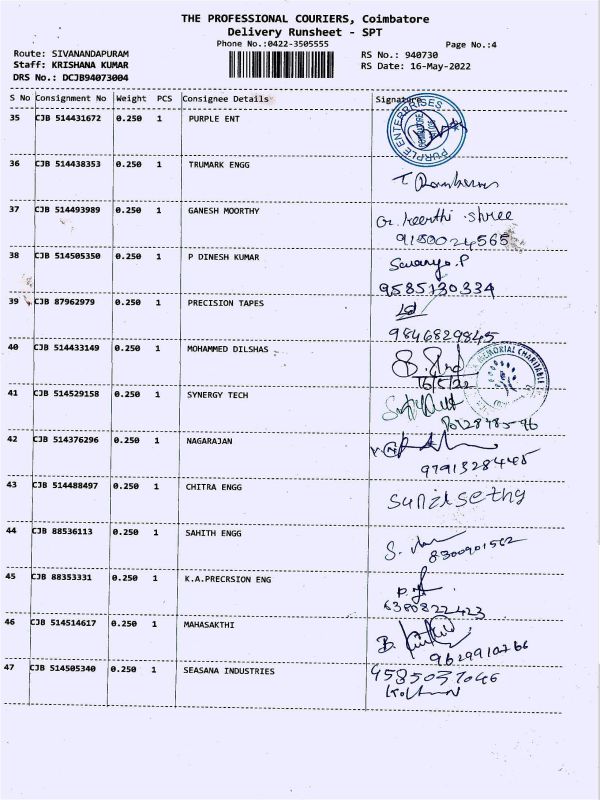 THE PROFESSIONAL COURIERS, Coimbatore
Delivery Runsheet - SPT
Phone No.:0422-3505555
Page No.:4
Route: SIVANANDAPURAM
RS No.: 940730
Staff: KRISHANA KUMAR
RS Date: 16-May-2022
DRS No.: DCJB94073004
S No Consignment No Weight PCS Consignee Details Signature
35 CJB 514431672 0.250 1 PURPLE ENT
PURPLE ENTERPRISES
36 CJB 514438353 0.250 1 TRUMARK ENGG
37 CJB 514493989 0.250 1 GANESH MOORTHY
G. Keerthi Shree
9180024565
38 CJB 514505350 0.250 1 P DINESH KUMAR
9585130334
39 CJB 87962979 0.250 1 PRECISION TAPES
9846829845
40 CJB 514433149 0.250 1 MOHAMMED DILSHAS
MEMORIAL CHARITABLE
16/5/22
41 CJB 514529158 0.250 1 SYNERGY TECH
42 CJB 514376296 0.250 1 NAGARAJAN
43 CJB 514488497 0.250 1 CHITRA ENGG
44 CJB 88536113 0.250 1 SAHITH ENGG
8300901562
45 CJB 88353331 0.250 1 K.A.PRECRSION ENG
6380822423
46 CJB 514514617 0.250 1 MAHASAKTHI
9629910266
47 CJB 514505340 0.250 1 SEASANA INDUSTRIES
9585037046